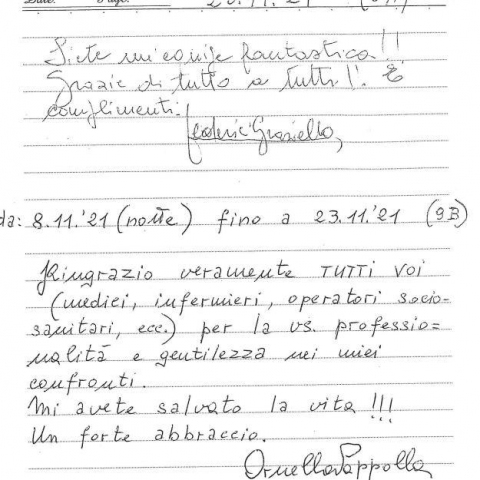 Siete un'equipe fantastica!!
Grazie di tutto a tutti! E
complimenti!
Graziella
da: 8.11.'21 (notte) fino a 23.11.'21 (9B)
Ringrazio veramente TUTTI VOI
(medici, infermieri, operatori socio-
sanitari, ecc.) per la vs. professio=
nalità e gentilezza nei miei
confronti.
Mi avete salvato la vita !!!
Un forte abbraccio.
Ornella Pappolla